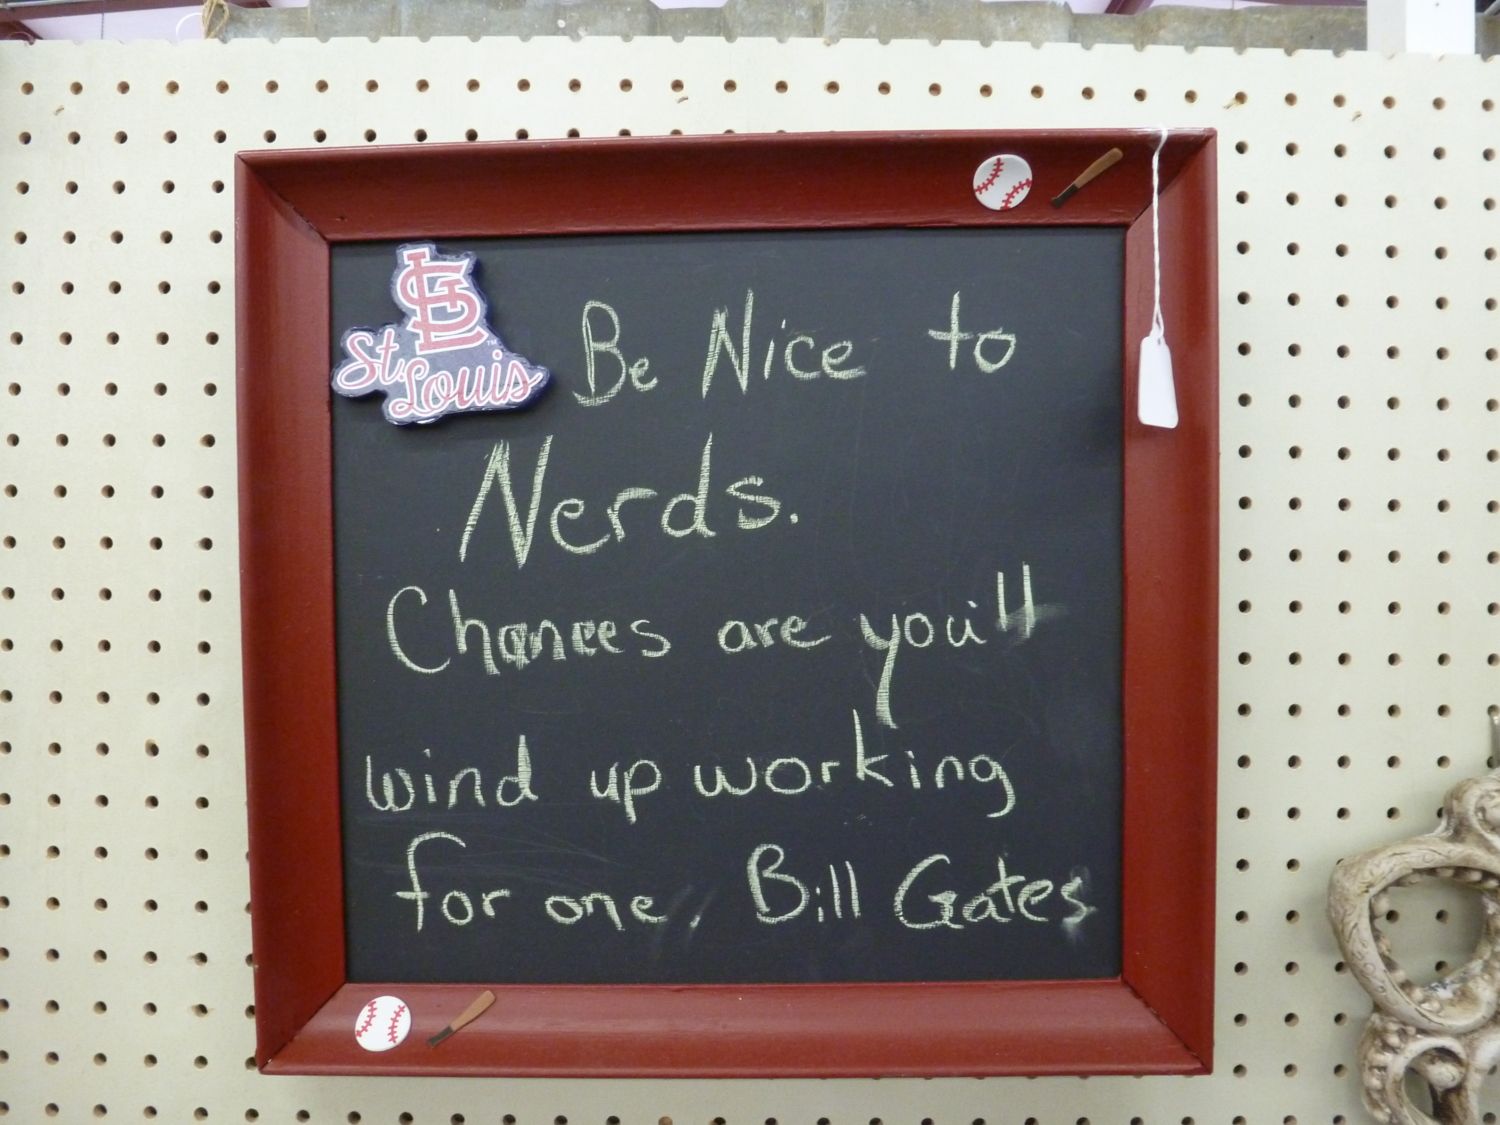 STL
St. Louis
Be Nice to
Nerds.
Chances are you'll
wind up working
for one. Bill Gates